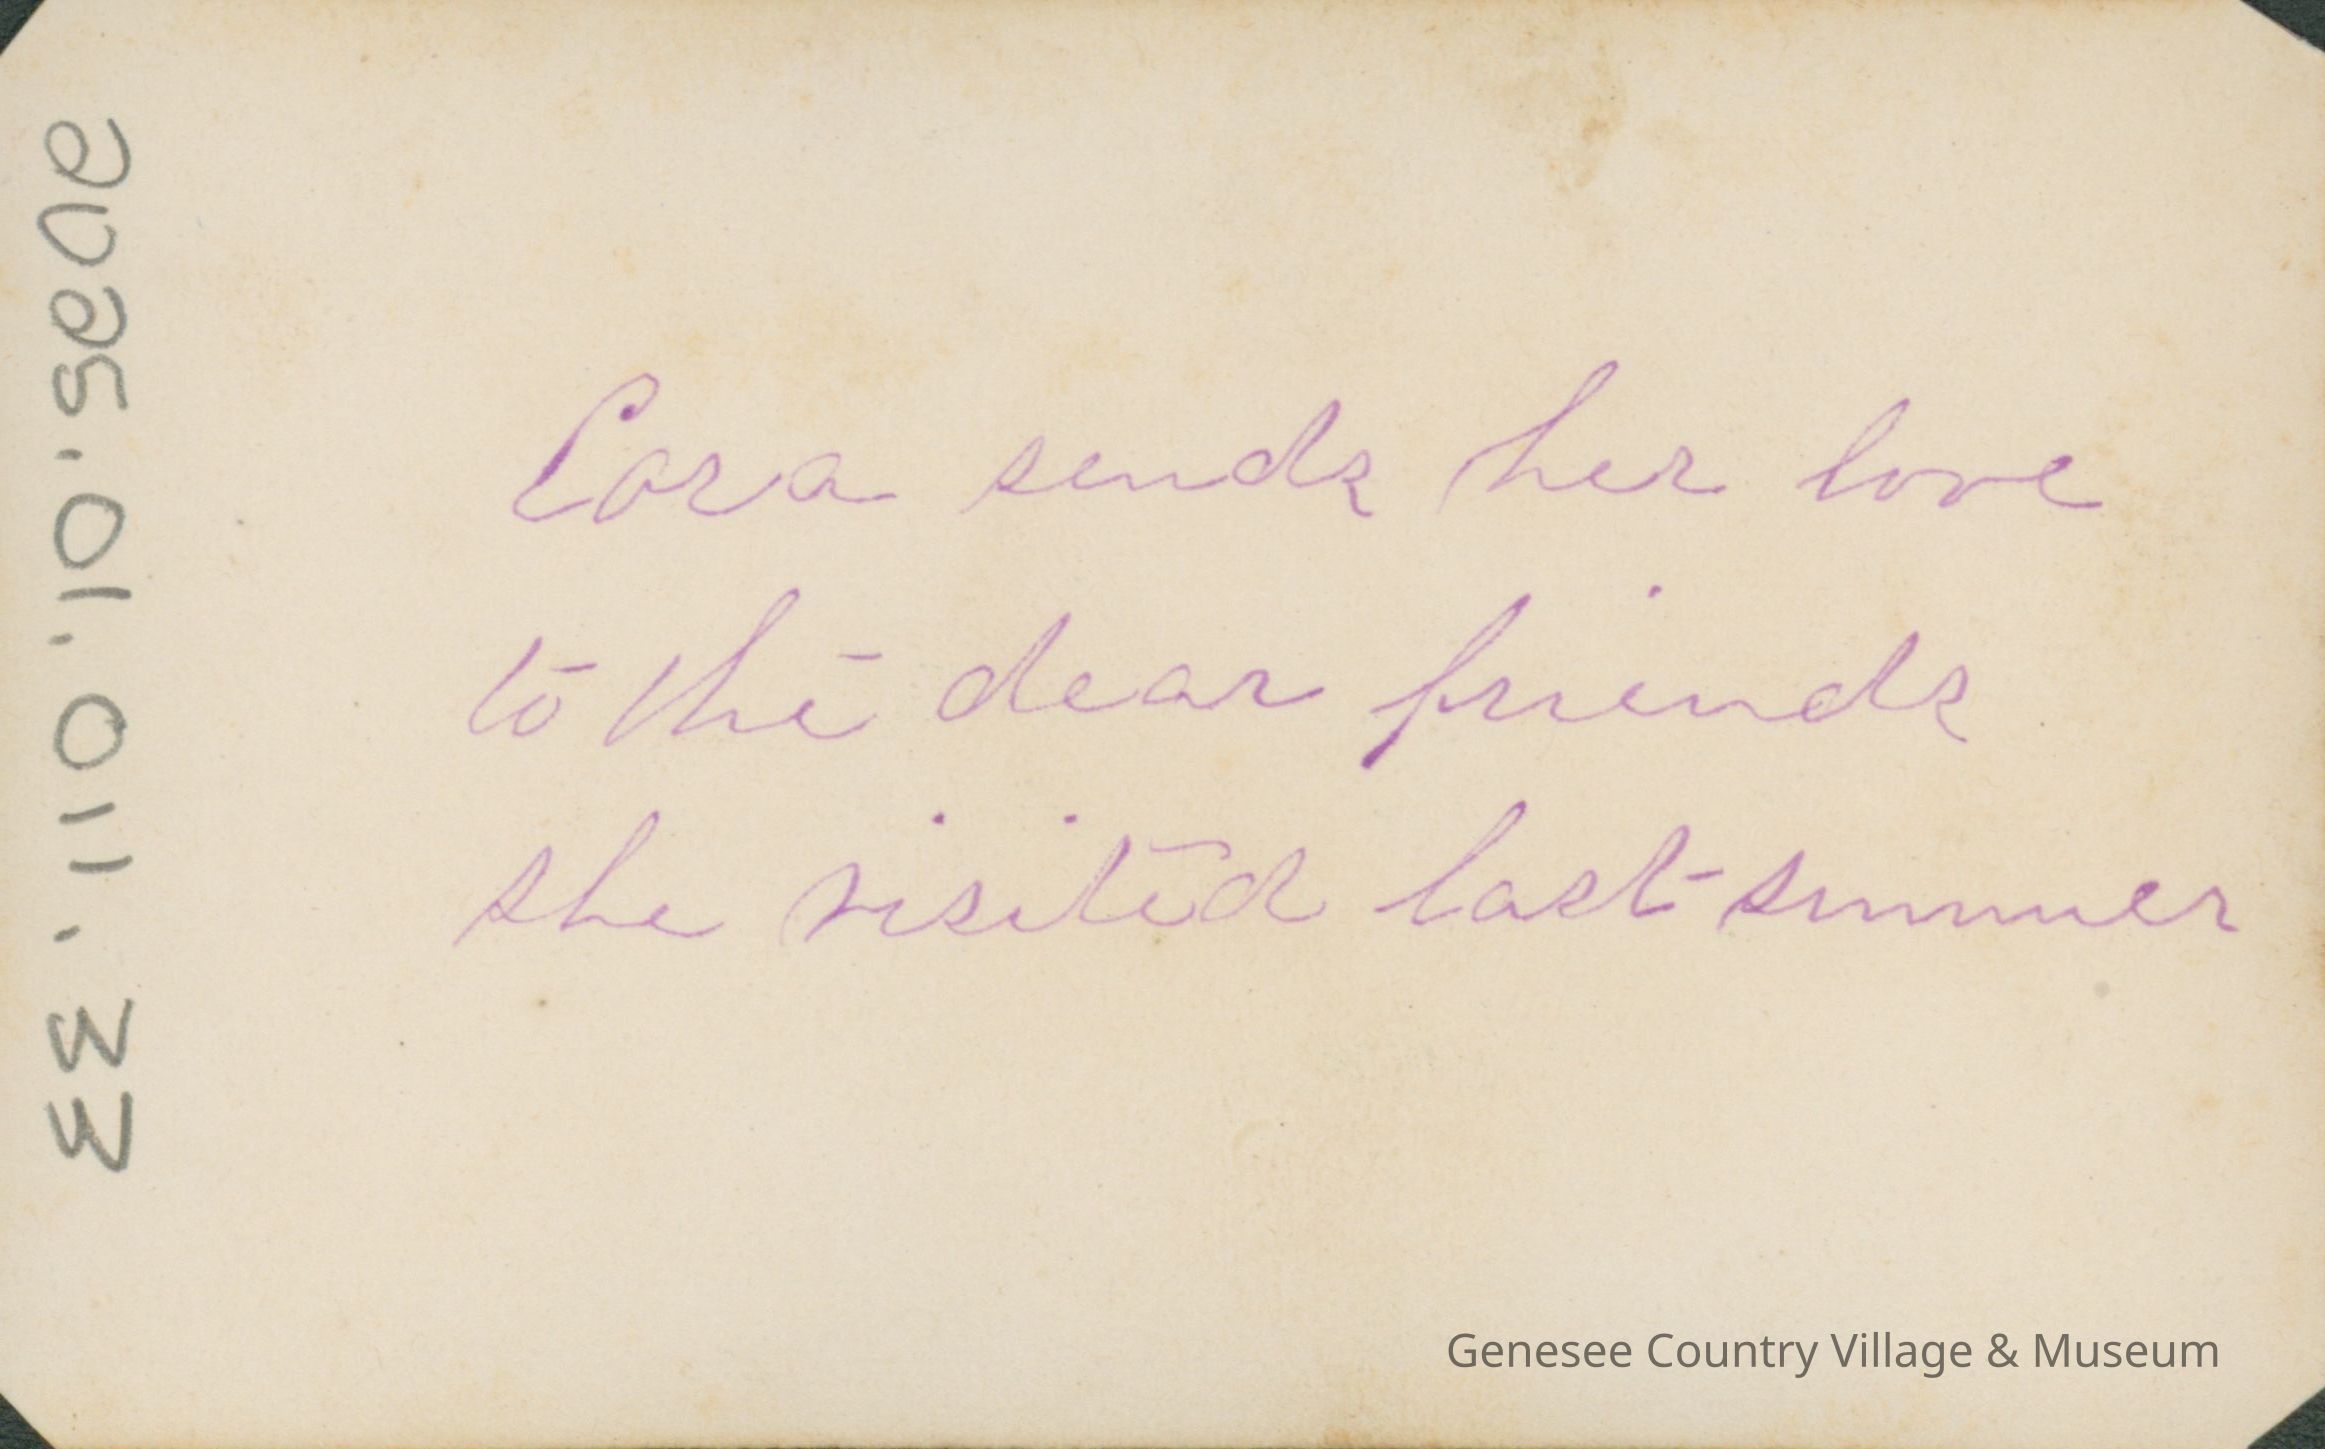 2025.01.011.33
Cora sends her love
to the dear friends
she visited last summer
Genesee Country Village & Museum